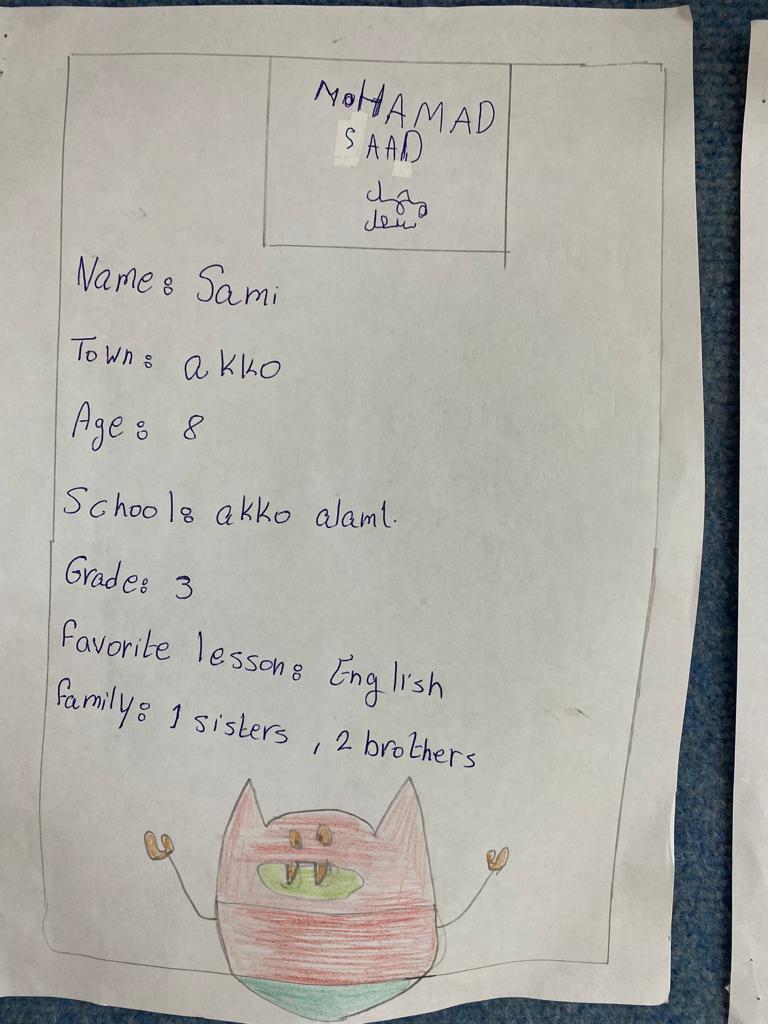 MOHAMAD
SAAD
محمد
سعد
Name: Sami
Town: akko
Age: 8
School: akko alaml.
Grade: 3
favorite lesson: English
family: 1 sisters, 2 brothers